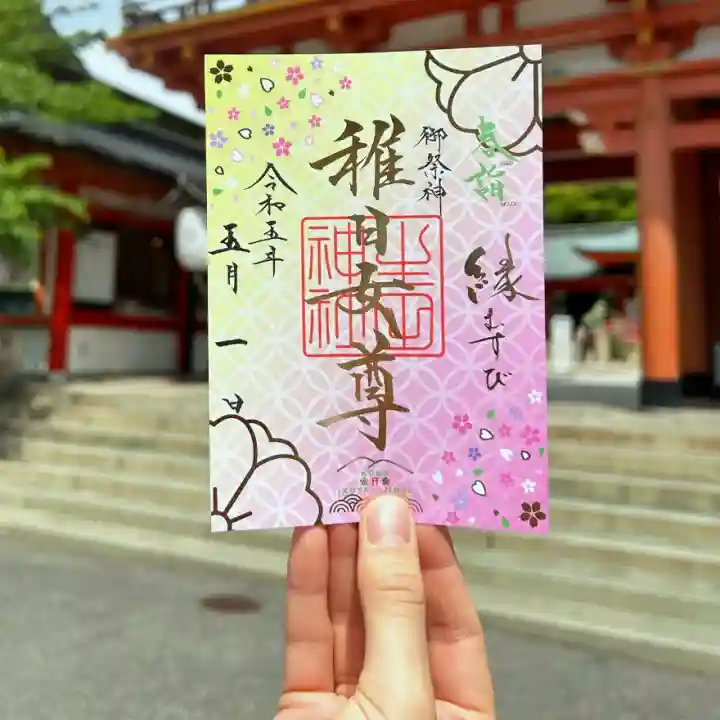 春詣
縁むすび
御祭神
稚日女尊
生田神社
令和五年
五月一日